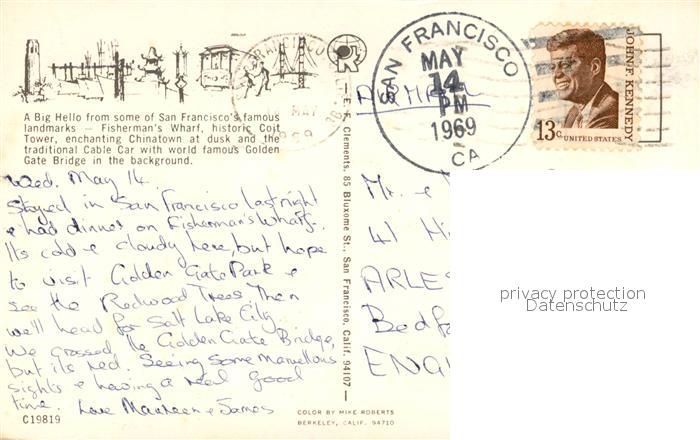 A Big Hello from some of San Francisco's famous
landmarks — Fisherman's Wharf, historic Coit
Tower, enchanting Chinatown at dusk and the
traditional Cable Car with world famous Golden
Gate Bridge in the background.
Wed. May 14.
Stayed in San Francisco last night
& had dinner on Fisherman's Wharf.
Its cold & cloudy here, but hope
to visit Golden Gate Park &
see the Redwood Trees. Then
we'll head for Salt Lake City.
We crossed the Golden Gate Bridge,
but its red. Seeing some marvellous
sights & having a real good
time. Love Maureen & James
C19819
E. F. Clements, 85 Bluxome St., San Francisco, Calif. 94107
COLOR BY MIKE ROBERTS
BERKELEY, CALIF. 94710
SAN FRANCISCO
MAY
14
PM
1969
CA
JOHN F. KENNEDY
13c UNITED STATES
Mr. &
41 Hi
ARLES
Bedfo
ENGL
privacy protection
Datenschutz